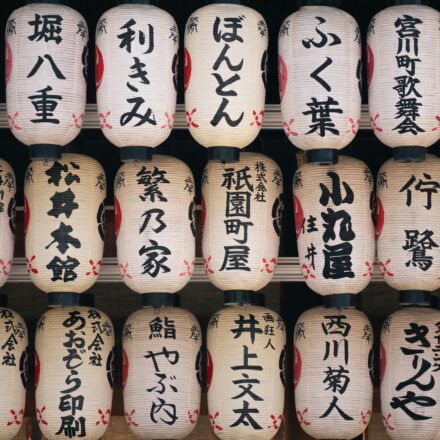 堀八重
利きみ
ぼんとん
ふく葉
宮川町歌舞会
松井本館
繁乃家
株式会社
祇園町屋
小丸屋
住井
佇鷺
株式会社
あおぞら印刷
鮨やぶ内
画狂人
井上文太
西川菊人
きりんや